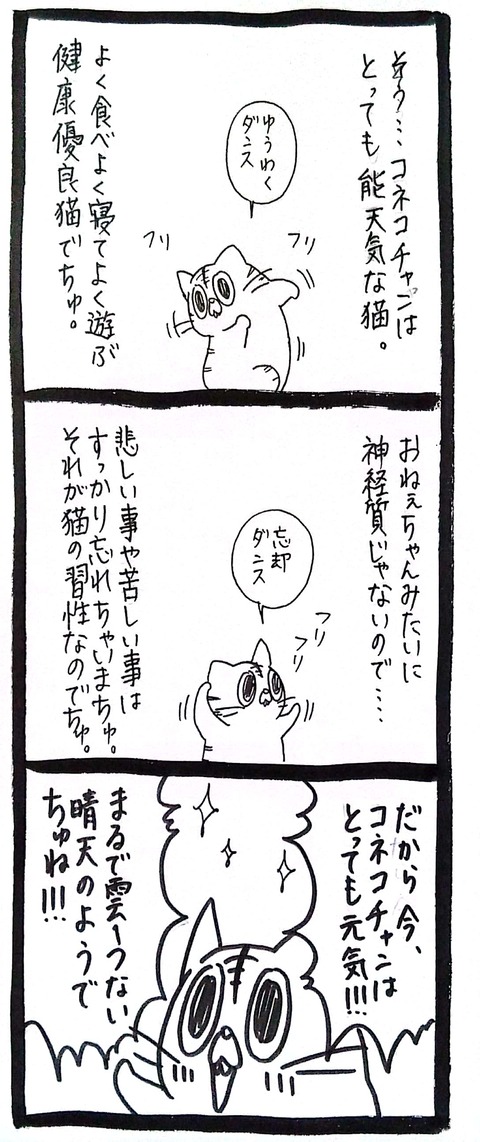 そう…コネコチャンは
とっても能天気な猫。
ゆうわく
ダンス
フリ
フリ
よく食べよく寝てよく遊ぶ
健康優良猫でちゅ。
おねぇちゃんみたいに
神経質じゃないので…
忘却
ダンス
フリ
フリ
悲しい事や苦しい事は
すっかり忘れちゃいまちゅ。
それが猫の習性なのでちゅ。
だから今、
コネコチャンは
とっても元気!!!
まるで雲1つない
晴天のようで
ちゅね!!!